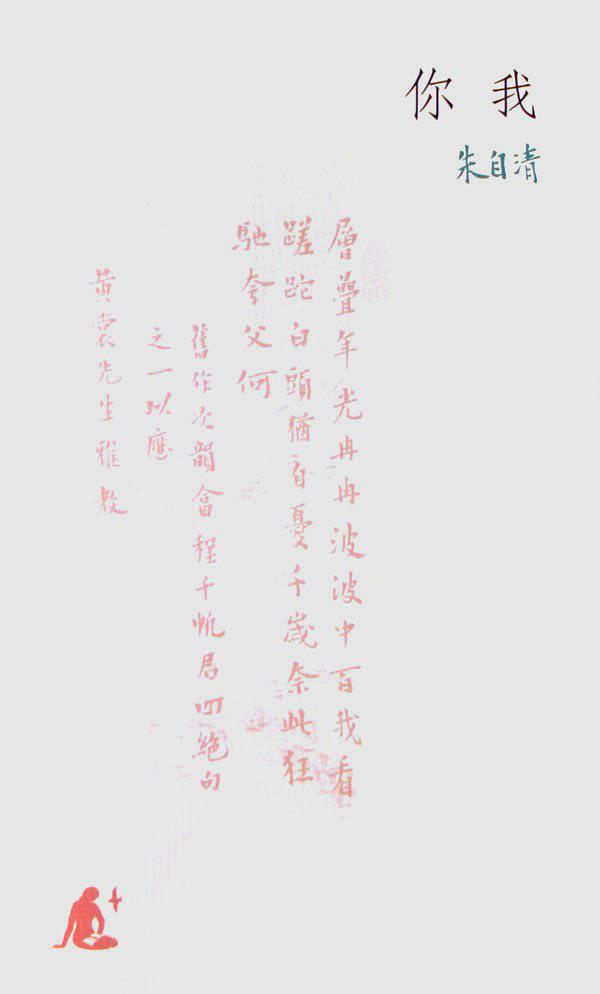 你我
朱自清
層疊年光冉冉波波中百我看
蹉跎白頭猶自憂千歲奈此狂
馳夸父何
舊作次韻畣程千帆君四絕句
之一以應
黃裳先生雅教